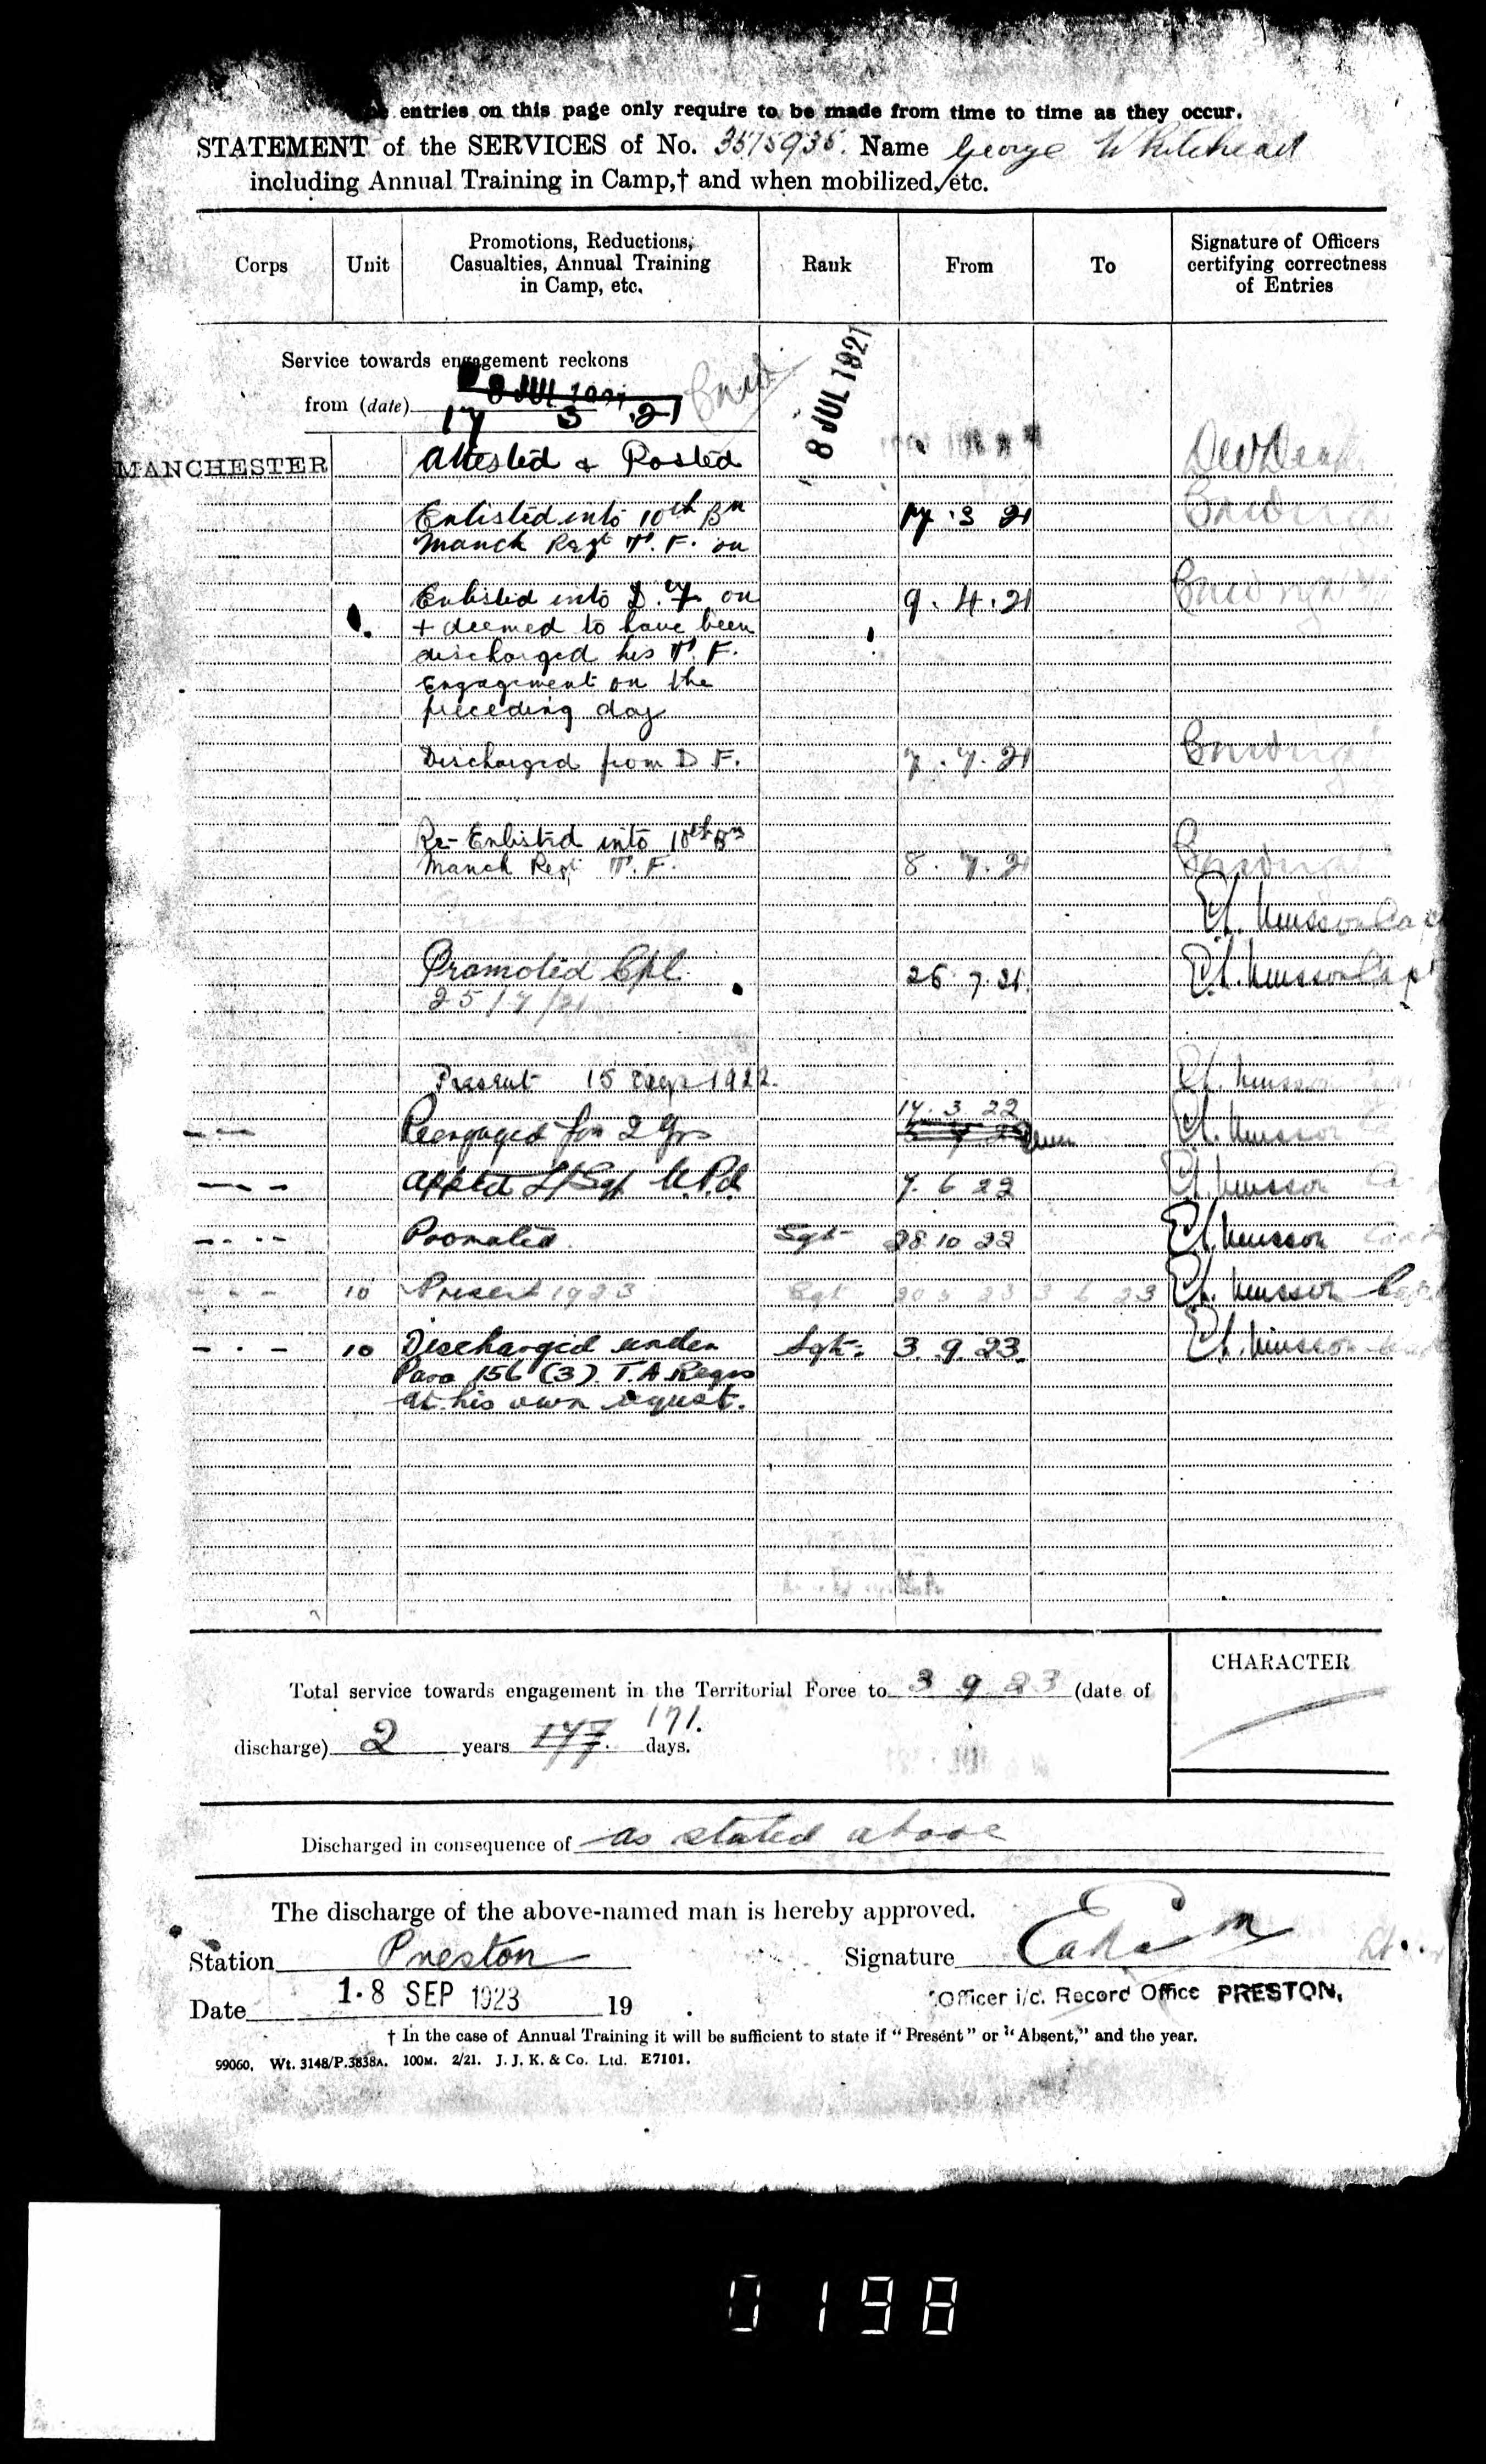 entries on this page only require to be made from time to time as they occur.
STATEMENT of the SERVICES of No. 3515935. Name George Whitehead
including Annual Training in Camp,† and when mobilized, etc.
Corps Unit Promotions, Reductions, Casualties, Annual Training in Camp, etc. Rank From To Signature of Officers certifying correctness of Entries
Service towards engagement reckons
8 JUL 1921
from (date) 17 3 .21
8 JUL 1921
MANCHESTER Attested & Posted
Enlisted into 10th Bn 17 . 3 21
Manch Regt T. F. on
Enlisted into D. F. on 9 . 4 . 21
+ deemed to have been
discharged his T. F.
Engagement on the
preceding day
Discharged from D F. 7 . 7 . 21
Re-Enlisted into 10th Bn
Manch Regt T. F. 8 . 7 . 21
Promoted Cpl. 26 . 7 . 21.
25/7/21
Present 15 days 1922.
17 . 3 22
Reengaged for 2 yrs
Appted L/Sgt U.Pd. 7. 6 22
Promoted. Sgt 28 10 22
10 Present 1923 Sgt 20 5 23 3 6 23
10 Discharged under Sgt. 3. 9. 23.
Para 156 (3) T.A Regns
at his own request.
Total service towards engagement in the Territorial Force to 3 9 23 (date of
discharge) 2 years 177. 171. days.
CHARACTER
Discharged in consequence of as stated above
The discharge of the above-named man is hereby approved.
Station Preston Signature
Officer i/c. Record Office PRESTON.
Date 18 SEP 1923 19
† In the case of Annual Training it will be sufficient to state if "Present" or "Absent," and the year.
99060. Wt. 3148/P.3838A. 100M. 2/21. J. J. K. & Co. Ltd. E7101.
0198